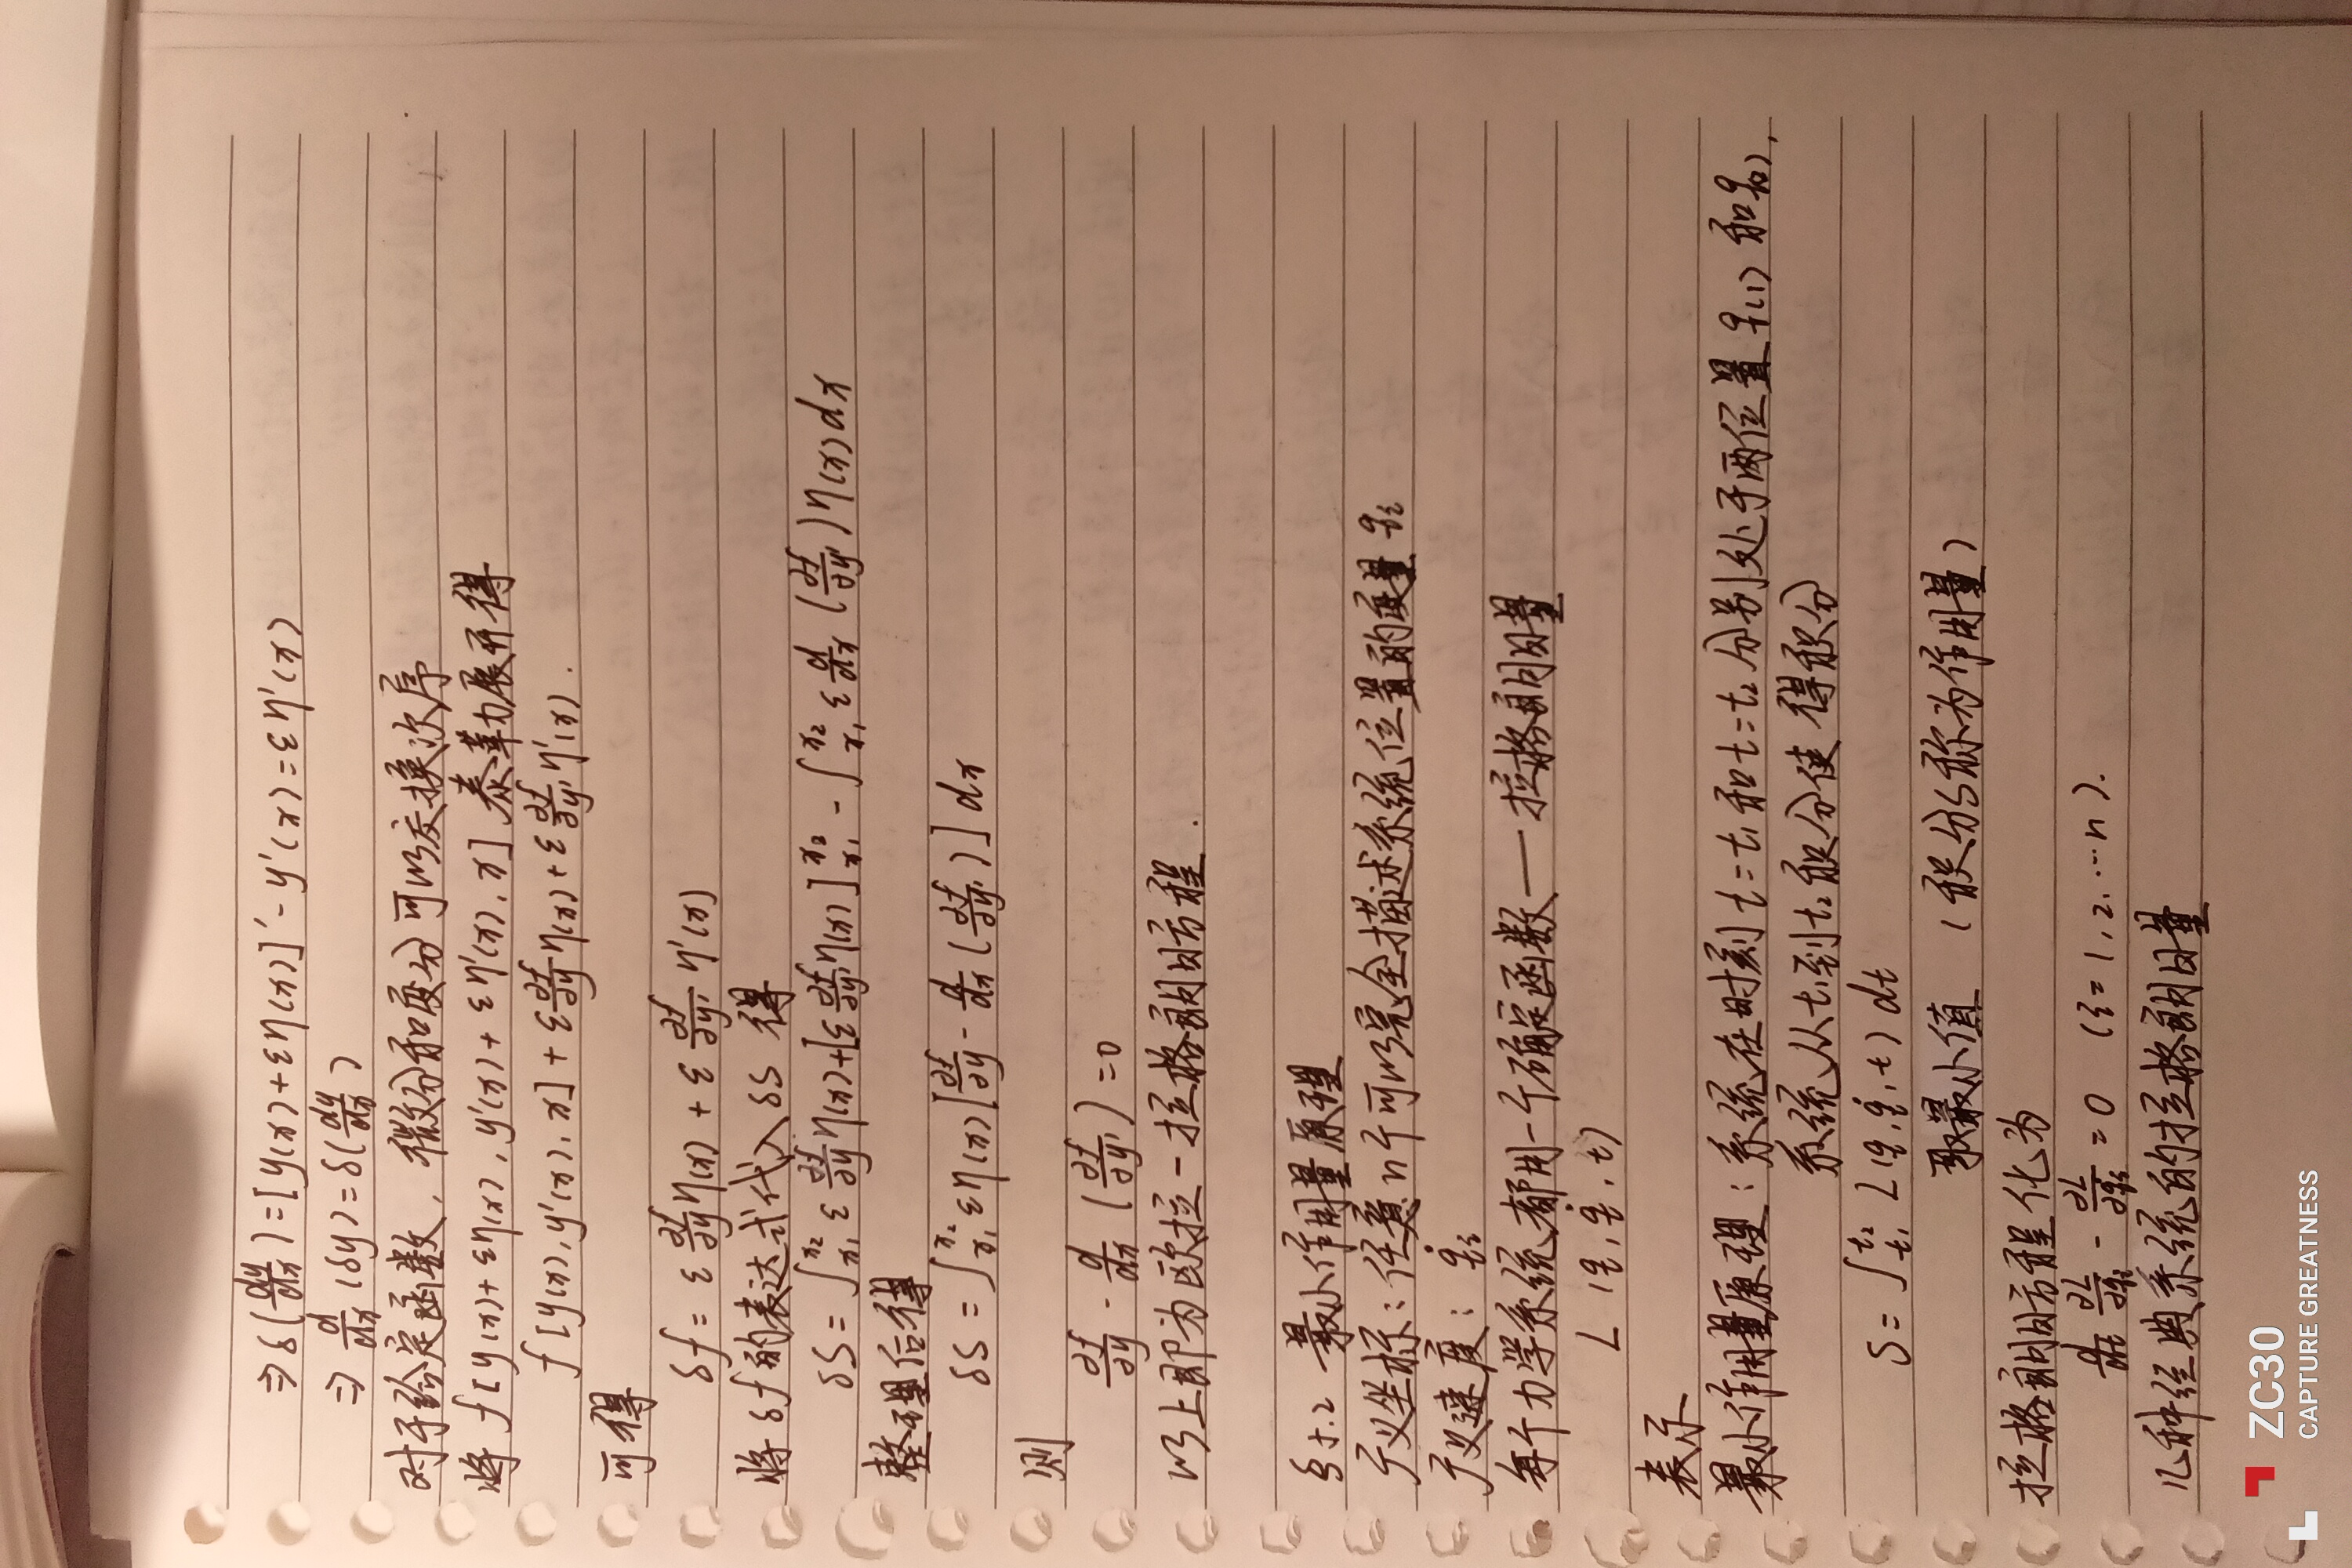 ⇒ δ(dy/dx) = [y(x)+εη(x)]' - y'(x) = εη'(x)
⇒ d/dx (δy) = δ(dy/dx)
对于给定函数，微分和变分可以交换次序
将 f[y(x)+εη(x), y'(x)+εη'(x), x] 泰革力展开得
f[y(x), y'(x), x] + ε ∂f/∂y η(x) + ε ∂f/∂y' η'(x).
可得
δf = ε ∂f/∂y η(x) + ε ∂f/∂y' η'(x)
将δf的表达式代入δS 得
δS = ∫_{x₁}^{x₂} ε ∂f/∂y η(x) + [ε ∂f/∂y' η(x)]_{x₁}^{x₂} - ∫_{x₁}^{x₂} ε d/dx (∂f/∂y') η(x) dx
整理后得
δS = ∫_{x₁}^{x₂} εη(x) [∂f/∂y - d/dx (∂f/∂y')] dx
则
∂f/∂y - d/dx (∂f/∂y') = 0
以上即为欧拉-拉格朗日方程.
§1.2 最小作用量原理
广义坐标：任意n个可以完全描述系统位置的变量 qᵢ
广义速度： q̇ᵢ
每个力学系统都用一个确定函数——拉格朗日量
L (q, q̇, t)
表示
最小作用量原理：系统在时刻 t=t₁ 和 t=t₂ 分别处于两位置 q(1) 和 q(2),
系统从t₁到t₂积分使得积分
S = ∫_{t₁}^{t₂} L(q, q̇, t) dt
取最小值 (积分S称为作用量)
拉格朗日方程化为
d/dt ∂L/∂q̇ᵢ - ∂L/∂qᵢ = 0 (i = 1, 2, … n).
几种经典系统的拉格朗日量
ZC30
CAPTURE GREATNESS